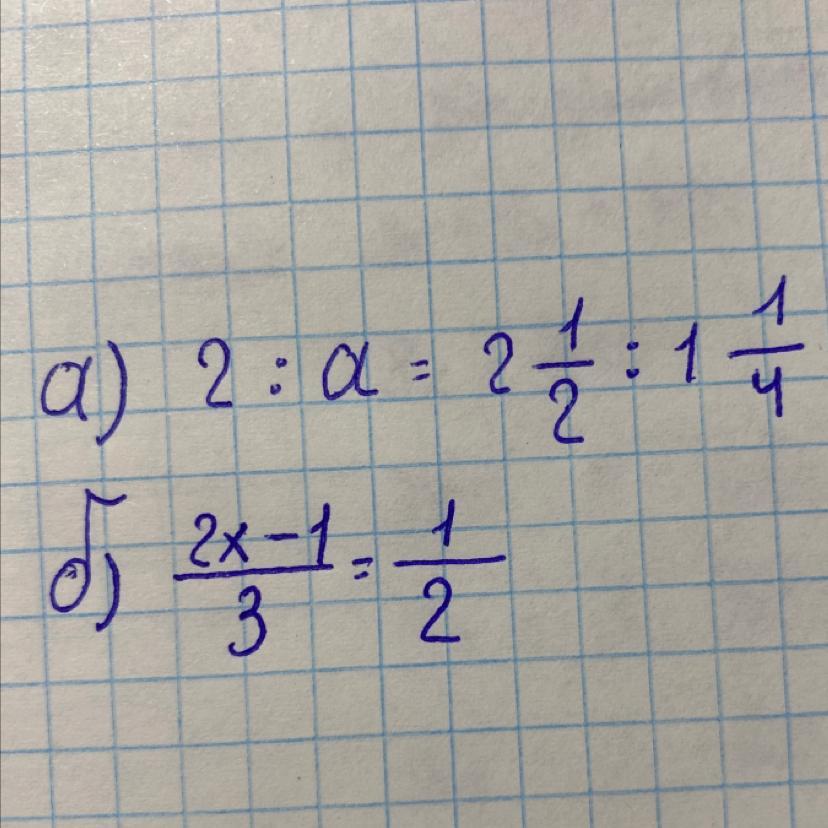 а) 2 : a = 2 1/2 : 1 1/4
б) (2x-1)/3 = 1/2